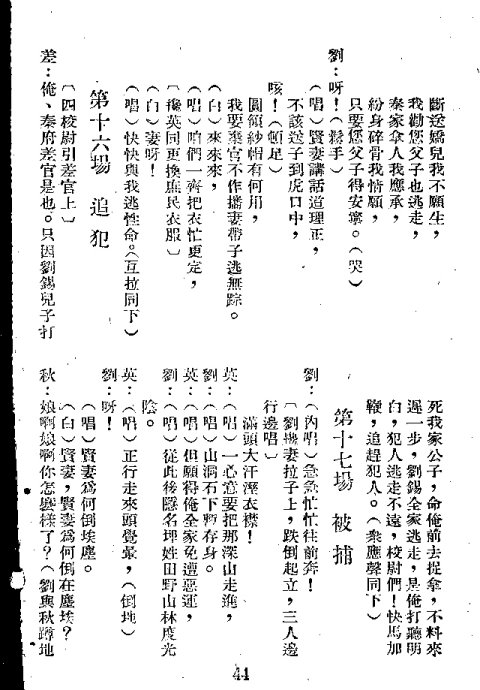 斷送嬌兒我不願生，
我勸您父子也逃走，
秦家拿人我應承，
紛身碎骨我情願，
只要您父子得安寧。（哭）
劉：呀！（鬆手）
（唱）賢妻講話道理正，
不該送子到虎口中，
咳！（頓足）
圓領紗帽有何用，
我要棄官不作攜妻帶子逃無踪。
（白）來來來，
（唱）咱們一齊把衣忙更定，
〔攙英同更換庶民衣服〕
（白）妻呀！
（唱）快快與我逃性命。（互拉同下）
第十六場 追犯
〔四校尉引差官上〕
差：俺、秦府差官是也。只因劉錫兒子打
死我家公子，命俺前去捉拿，不料來
遲一步，劉錫全家逃走，是俺打聽明
白，犯人逃走不遠，校尉們！快馬加
鞭，追趕犯人。（衆應聲同下）
第十七場 被捕
劉：（內唱）急急忙忙往前奔！
〔劉攙妻拉子上，跌倒起立，三人邊
行邊唱〕
滿頭大汗溼衣襟！
英：（唱）一心意要把那深山走進，
劉：（唱）山洞石下暫存身。
英：（唱）但願得俺全家免遭惡運，
劉：（唱）從此後隱名埋姓田野山林度光
陰。
英：（唱）正行走來頭覺暈，（倒地）
劉：呀！
（唱）賢妻爲何倒埃塵。
（白）賢妻，賢妻爲何倒在塵埃？
秋：娘啊娘啊你怎麼樣了？（劉與秋蹲地
44